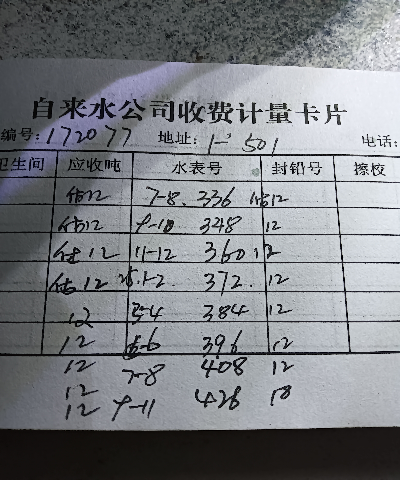 自来水公司收费计量卡片
编号:172077 地址:1- 501 电话:
卫生间 应收吨 水表号 封铅号 擦校
估12 7-8. 336 估12
估12 9-10 348 12
估12 11-12 360 12
估12 25.1-2 372. 12
12 3-4 384 12
12 5-6 396 12
12 7-8 408 12
12
12 9-11 426 18